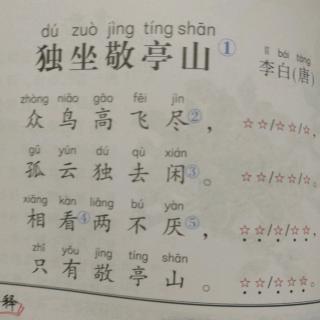 dú zuò jìng tíng shān
独坐敬亭山①
lǐ bái táng
李白(唐)
zhòng niǎo gāo fēi jìn
众鸟高飞尽②，☆☆/☆☆/☆，
gū yún dú qù xián
孤云独去闲③。☆☆/☆☆/☆。
xiāng kàn liǎng bú yàn
相看④两不厌⑤，☆☆/☆/☆☆，
zhǐ yǒu jìng tíng shān
只有敬亭山。☆☆/☆☆☆。
释